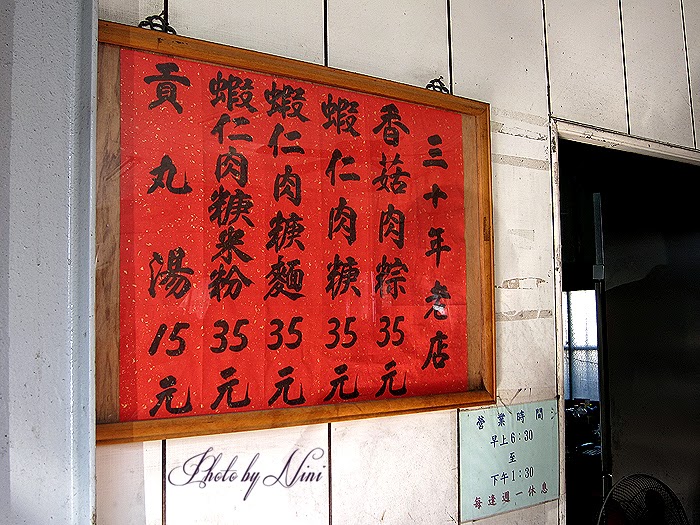 三十年老店
香菇肉粽35元
蝦仁肉糠35元
蝦仁肉糠麵35元
蝦仁肉糠米粉35元
貢丸湯15元
營業時間:
早上6:30
至
下午1:30
每逢週一休息
Photo by Nini